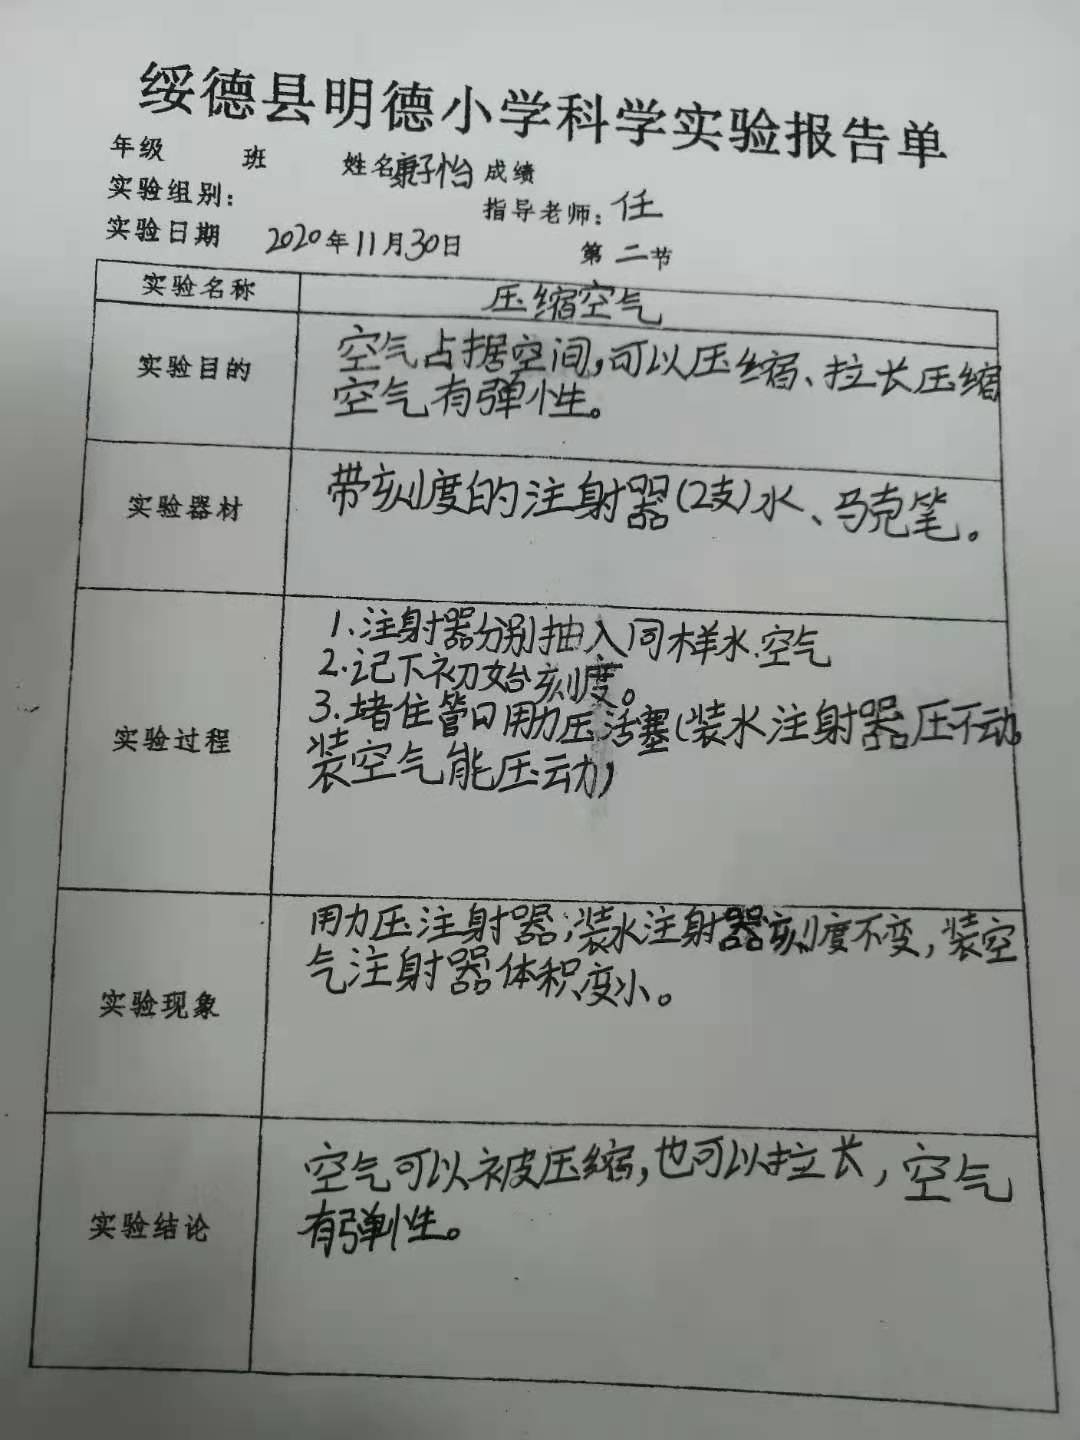 绥德县明德小学科学实验报告单
年级 班 姓名康子怡 成绩
实验组别: 指导老师:任
实验日期 2020年11月30日 第二节
实验名称 压缩空气
实验目的 空气占据空间,可以压缩、拉长压缩
空气有弹性。
实验器材 带刻度的注射器(2支)水、马克笔。
实验过程 1.注射器分别抽入同样水.空气
2.记下初始刻度。
3.堵住管口用力压活塞(装水注射器压不动。
装空气能压动)
实验现象 用力压注射器;装水注射器刻度不变,装空
气注射器体积变小。
实验结论 空气可以被压缩,也可以拉长,空气
有弹性。